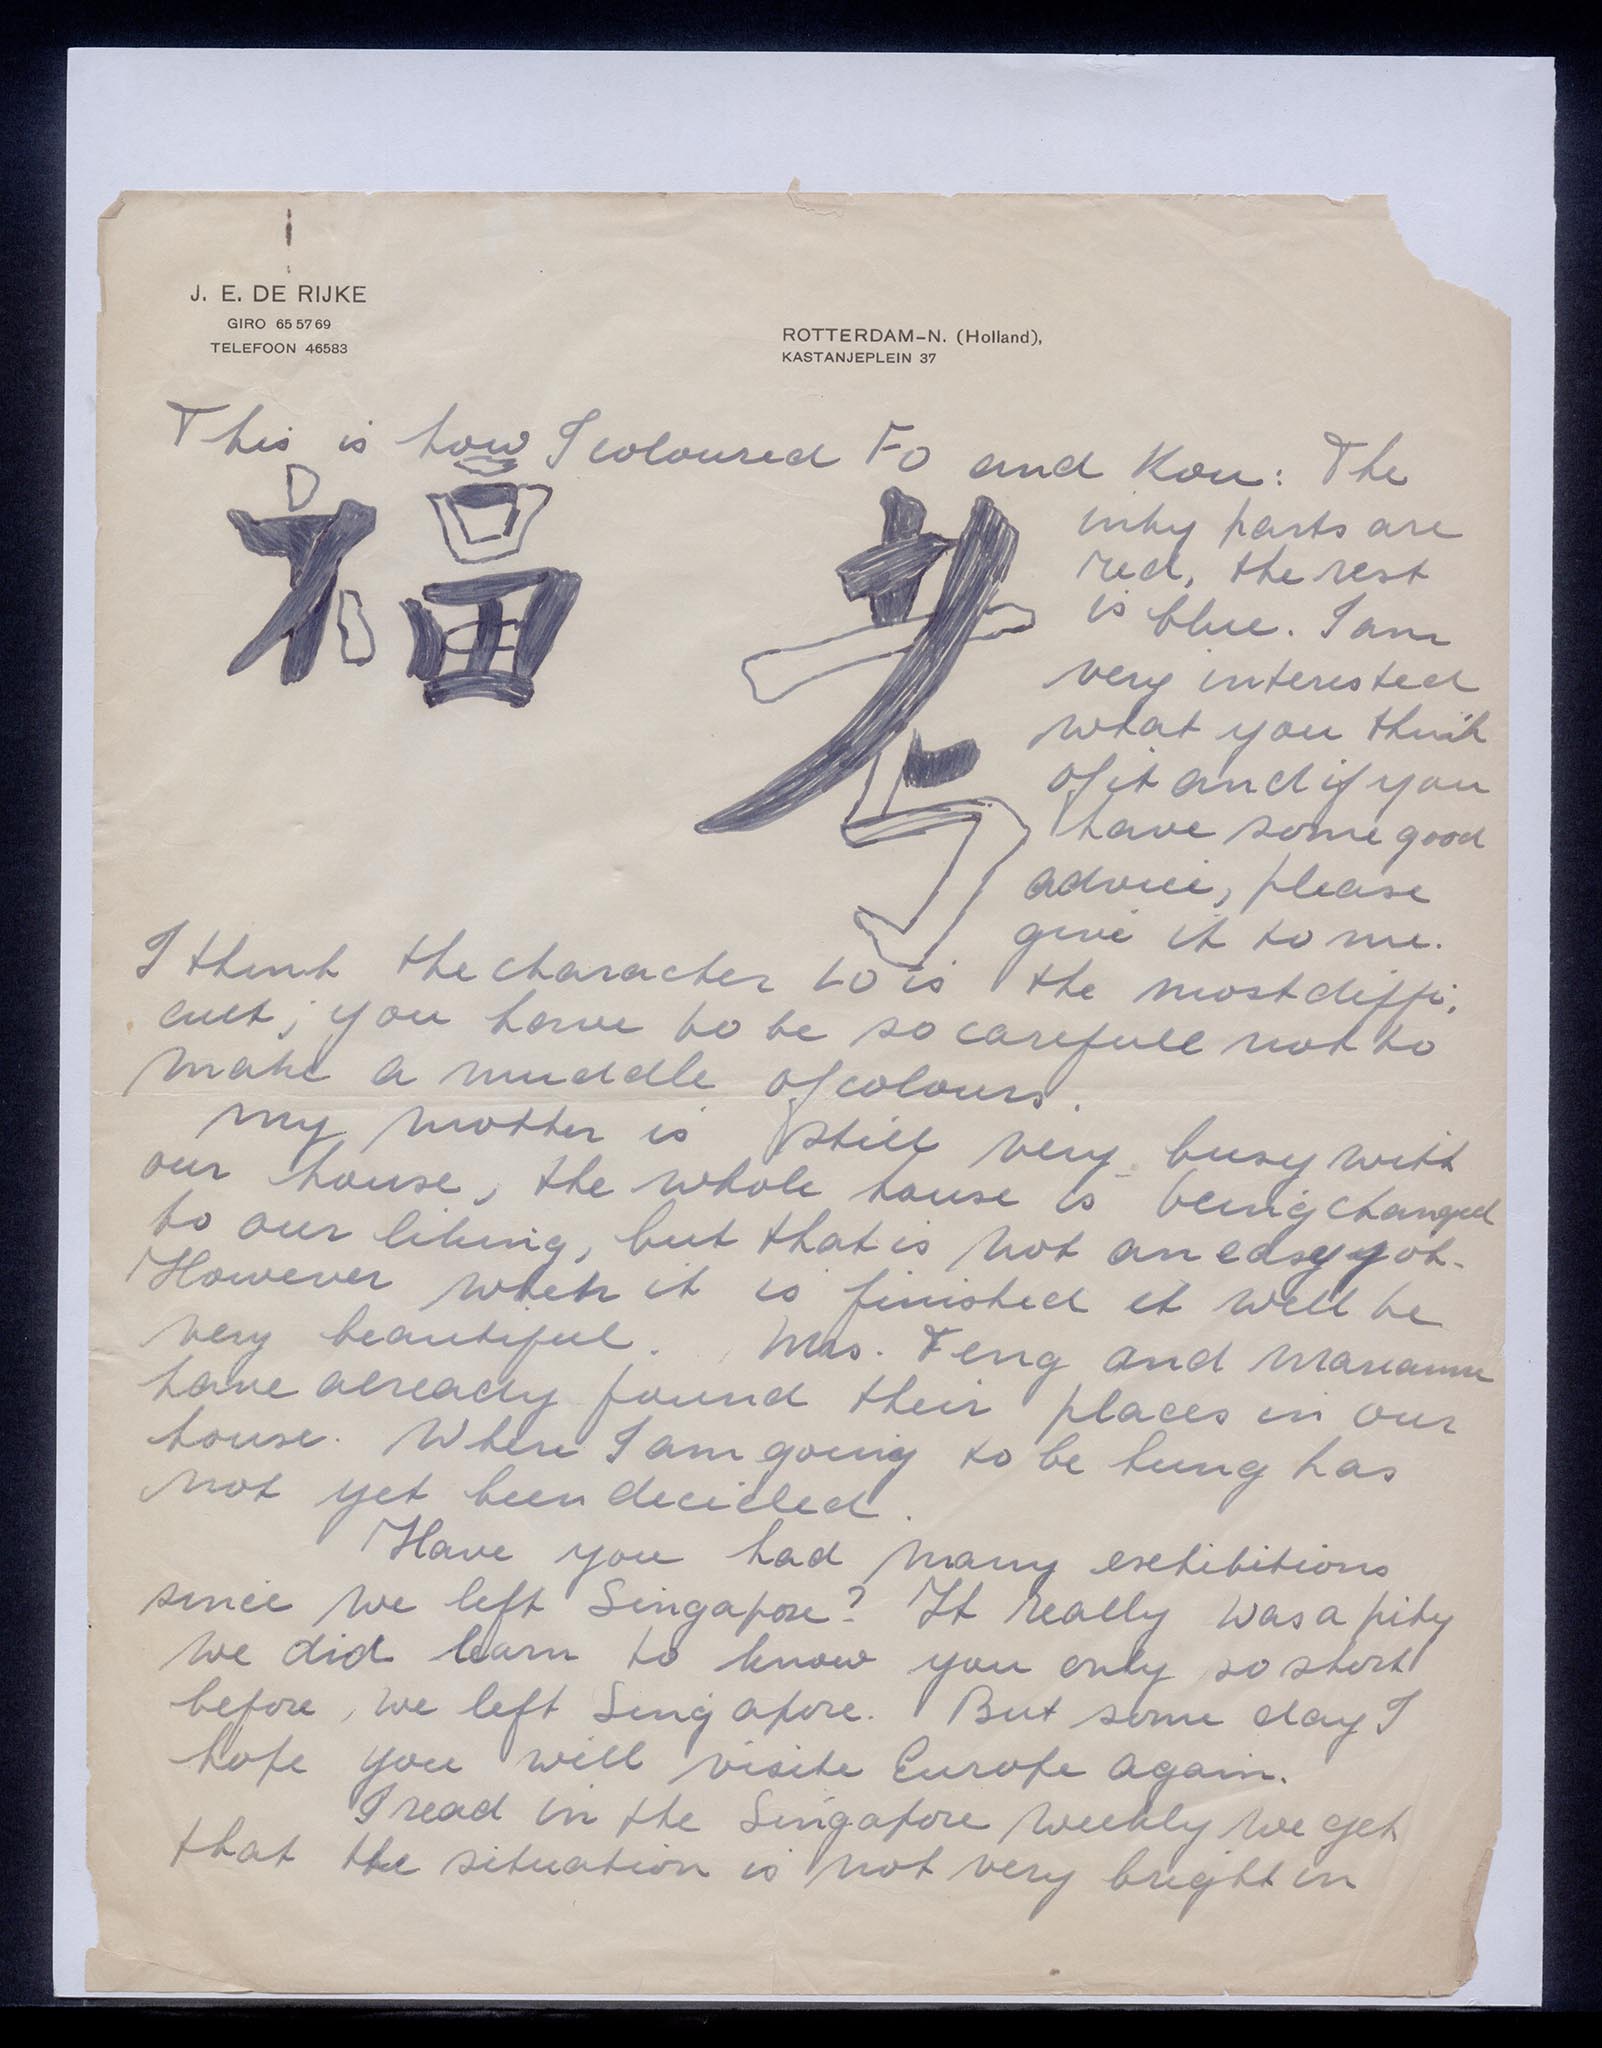 J. E. DE RIJKE
GIRO 655769
TELEFOON 46583
ROTTERDAM-N. (Holland),
KASTANJEPLEIN 37
This is how I coloured Fo and Kou: The
福 考
inky parts are
red, the rest
is blue. I am
very interested
what you think
of it and if you
have some good
advice, please
give it to me.
I think the character Lo is the most diffi-
cult; you have to be so carefull not to
make a muddle of colours.
My mother is still very busy with
our house, the whole house is being changed
to our liking, but that is not an easy yob.
However when it is finished it will be
very beautiful. Mrs. Feng and Marianne
have already found their places in our
house. Where I am going to be hung has
not yet been decided.
Have you had many exhibitions
since we left Singapore? It really was a pity
we did learn to know you only so short
before we left Singapore. But some day I
hope you will visite Europe again.
I read in the Singapore weekly we get
that the situation is not very bright in